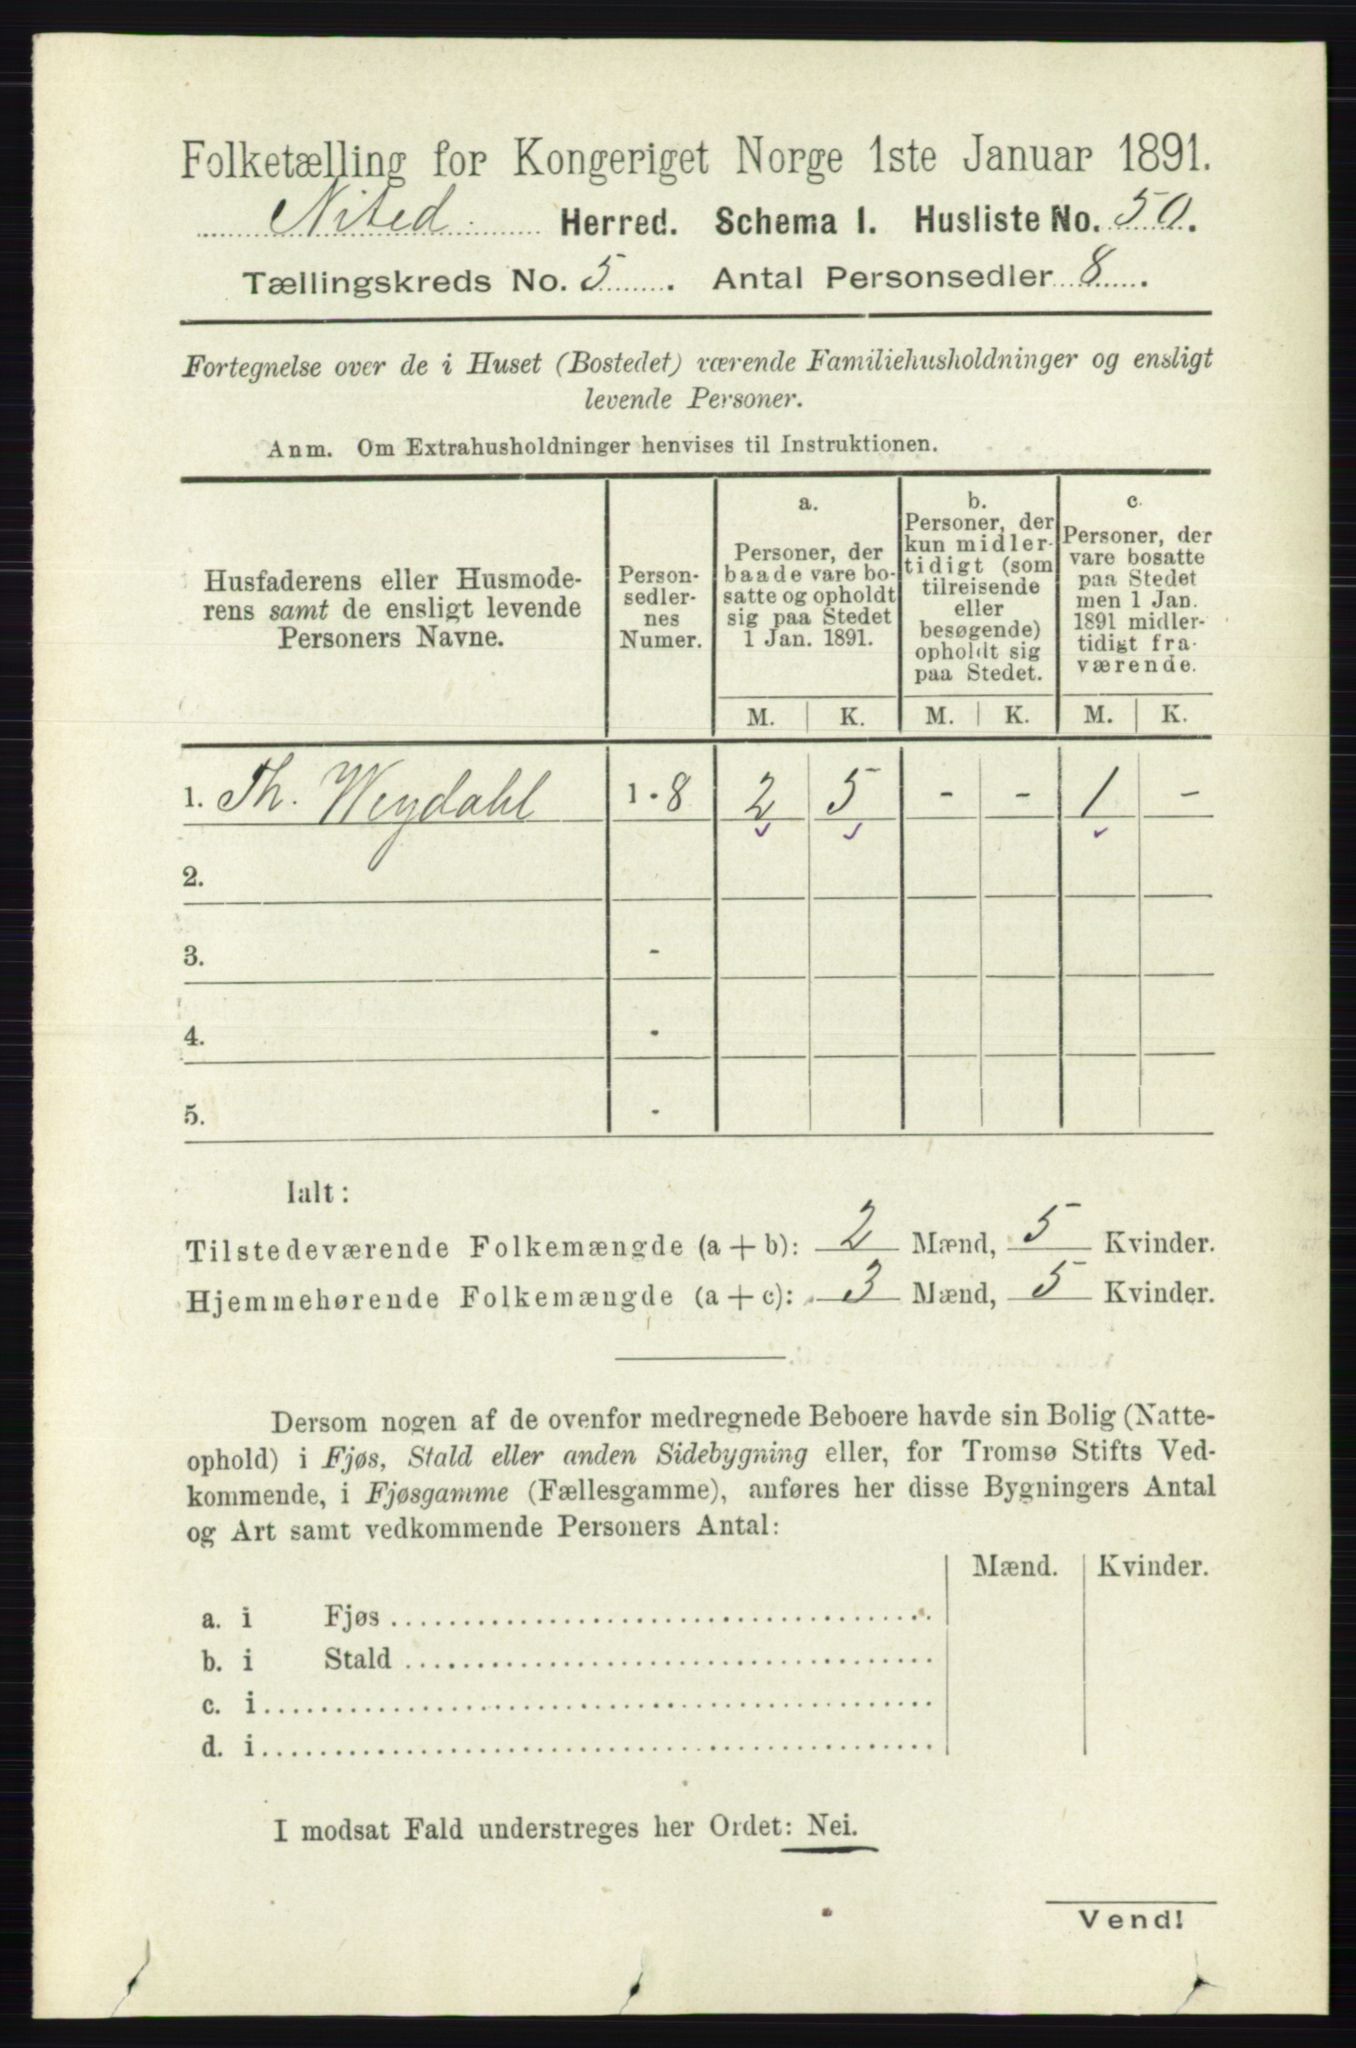 Folketælling for Kongeriget Norge 1ste Januar 1891.
Nited Herred. Schema I. Husliste No. 50.
Tællingskreds No. 5. Antal Personsedler 8.
Fortegnelse over de i Huset (Bostedet) værende Familiehusholdninger og ensligt
levende Personer.
Anm. Om Extrahusholdninger henvises til Instruktionen.
Husfaderens eller Husmode-
rens samt de ensligt levende
Personers Navne.
Person-
sedler-
nes
Numer.
a.
Personer, der
baade vare bo-
satte og opholdt
sig paa Stedet
1 Jan. 1891.
b.
Personer, der
kun midler-
tidigt (som
tilreisende
eller
besøgende)
opholdt sig
paa Stedet.
c.
Personer, der
vare bosatte
paa Stedet
men 1 Jan.
1891 midler-
tidigt fra-
værende.
M. K. M. K. M. K.
1. Th. Weydahl 1-8 2 5 - - 1 -
2.
3. -
4. -
5. -
Ialt:
Tilstedeværende Folkemængde (a + b): 2 Mænd, 5 Kvinder.
Hjemmehørende Folkemængde (a + c): 3 Mænd, 5 Kvinder.
Dersom nogen af de ovenfor medregnede Beboere havde sin Bolig (Natte-
ophold) i Fjøs, Stald eller anden Sidebygning eller, for Tromsø Stifts Ved-
kommende, i Fjøsgamme (Fællesgamme), anføres her disse Bygningers Antal
og Art samt vedkommende Personers Antal:
Mænd. Kvinder.
a. i Fjøs
b. i Stald
c. i
d. i
I modsat Fald understreges her Ordet: Nei.
Vend!